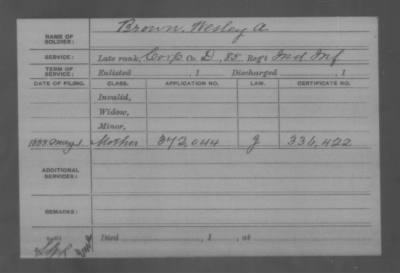 NAME OF SOLDIER: Brown, Wesley A.
SERVICE: Late rank, Corp Co. D, 85 Reg't Ind Inf
TERM OF SERVICE: Enlisted , 1 Discharged , 1
DATE OF FILING. CLASS. APPLICATION NO. LAW. CERTIFICATE NO.
Invalid,
Widow,
Minor,
1888 May 1 Mother 372,044 g 336,422
ADDITIONAL SERVICES:
REMARKS:
Died , 1 , at